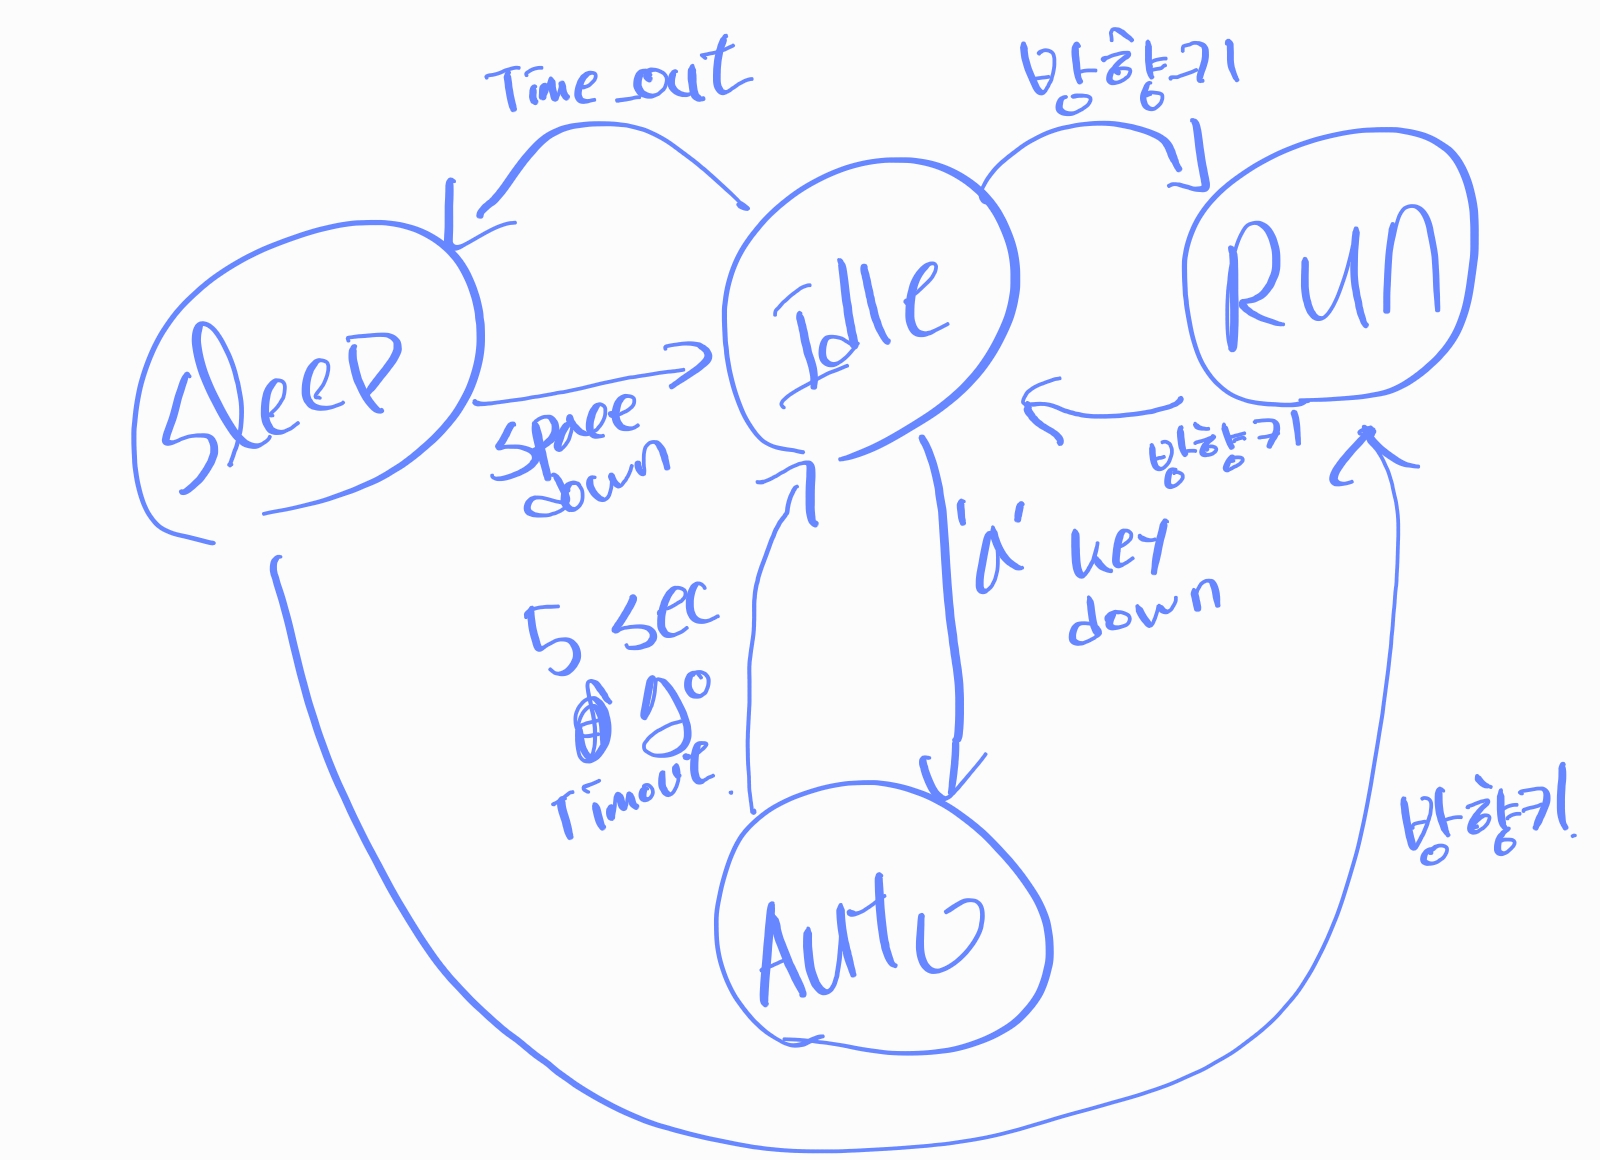 Time_out
방향키
Sleep
Idle
RUN
space
down
방향키
'a' key
down
5 sec
go
Timout.
방향키.
AUTO